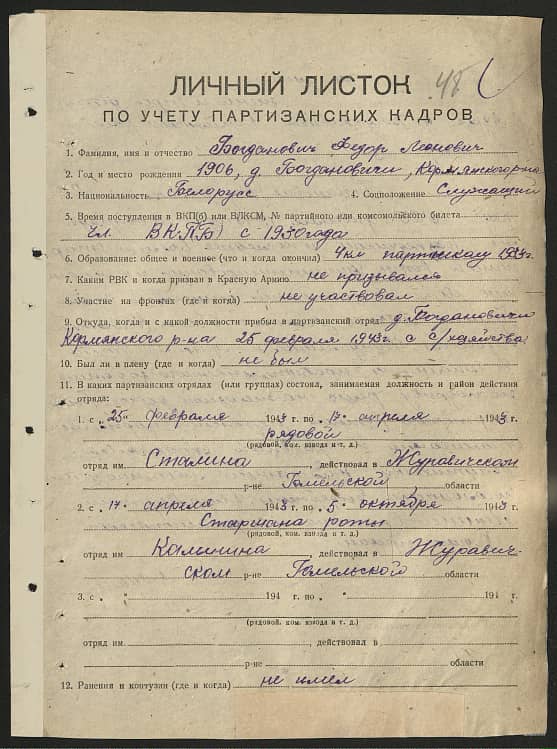 48
ЛИЧНЫЙ ЛИСТОК
ПО УЧЕТУ ПАРТИЗАНСКИХ КАДРОВ
1. Фамилия, имя и отчество Богданович Федор
2. Год и место рождения 1906, д. Богдановичи, Кормянского р-на
3. Национальность Белорус 4. Соцположение Служащий
5. Время поступления в ВКП(б) или ВЛКСМ, № партийного или комсомольского билета
чл. ВКП(б) с 1930 года
6. Образование: общее и военное (что и когда окончил) 4 кл
7. Каким РВК и когда призван в Красную Армию не призывался
8. Участие на фронтах (где и когда) не участвовал
9. Откуда, когда и с какой должности прибыл в партизанский отряд д. Богдановичи
Кормянского р-на 25 февраля 1943 г. с с/хозяйства
10. Был ли в плену (где и когда) не был
11. В каких партизанских отрядах (или группах) состоял, занимаемая должность и район действия
отряда:
1. с „25" февраля 1943 г. по „17" апреля 1943 г.
рядовой
(рядовой, ком. взвода и т. д.)
отряд им. Сталина, действовал в Журавичском
р-не Гомельской области
2. с „17" апреля 1943 г. по „5" октября 1943 г.
Старшина роты
(рядовой, ком. взвода и т. д.)
отряд им. Калинина, действовал в Журавич-
ском р-не Гомельского области
3. с „ " 194 г. по „ " 194 г.
(рядовой, ком. взвода и т. д.)
отряд им. , действовал в
р-не области
12. Ранения и контузии (где и когда) не имел